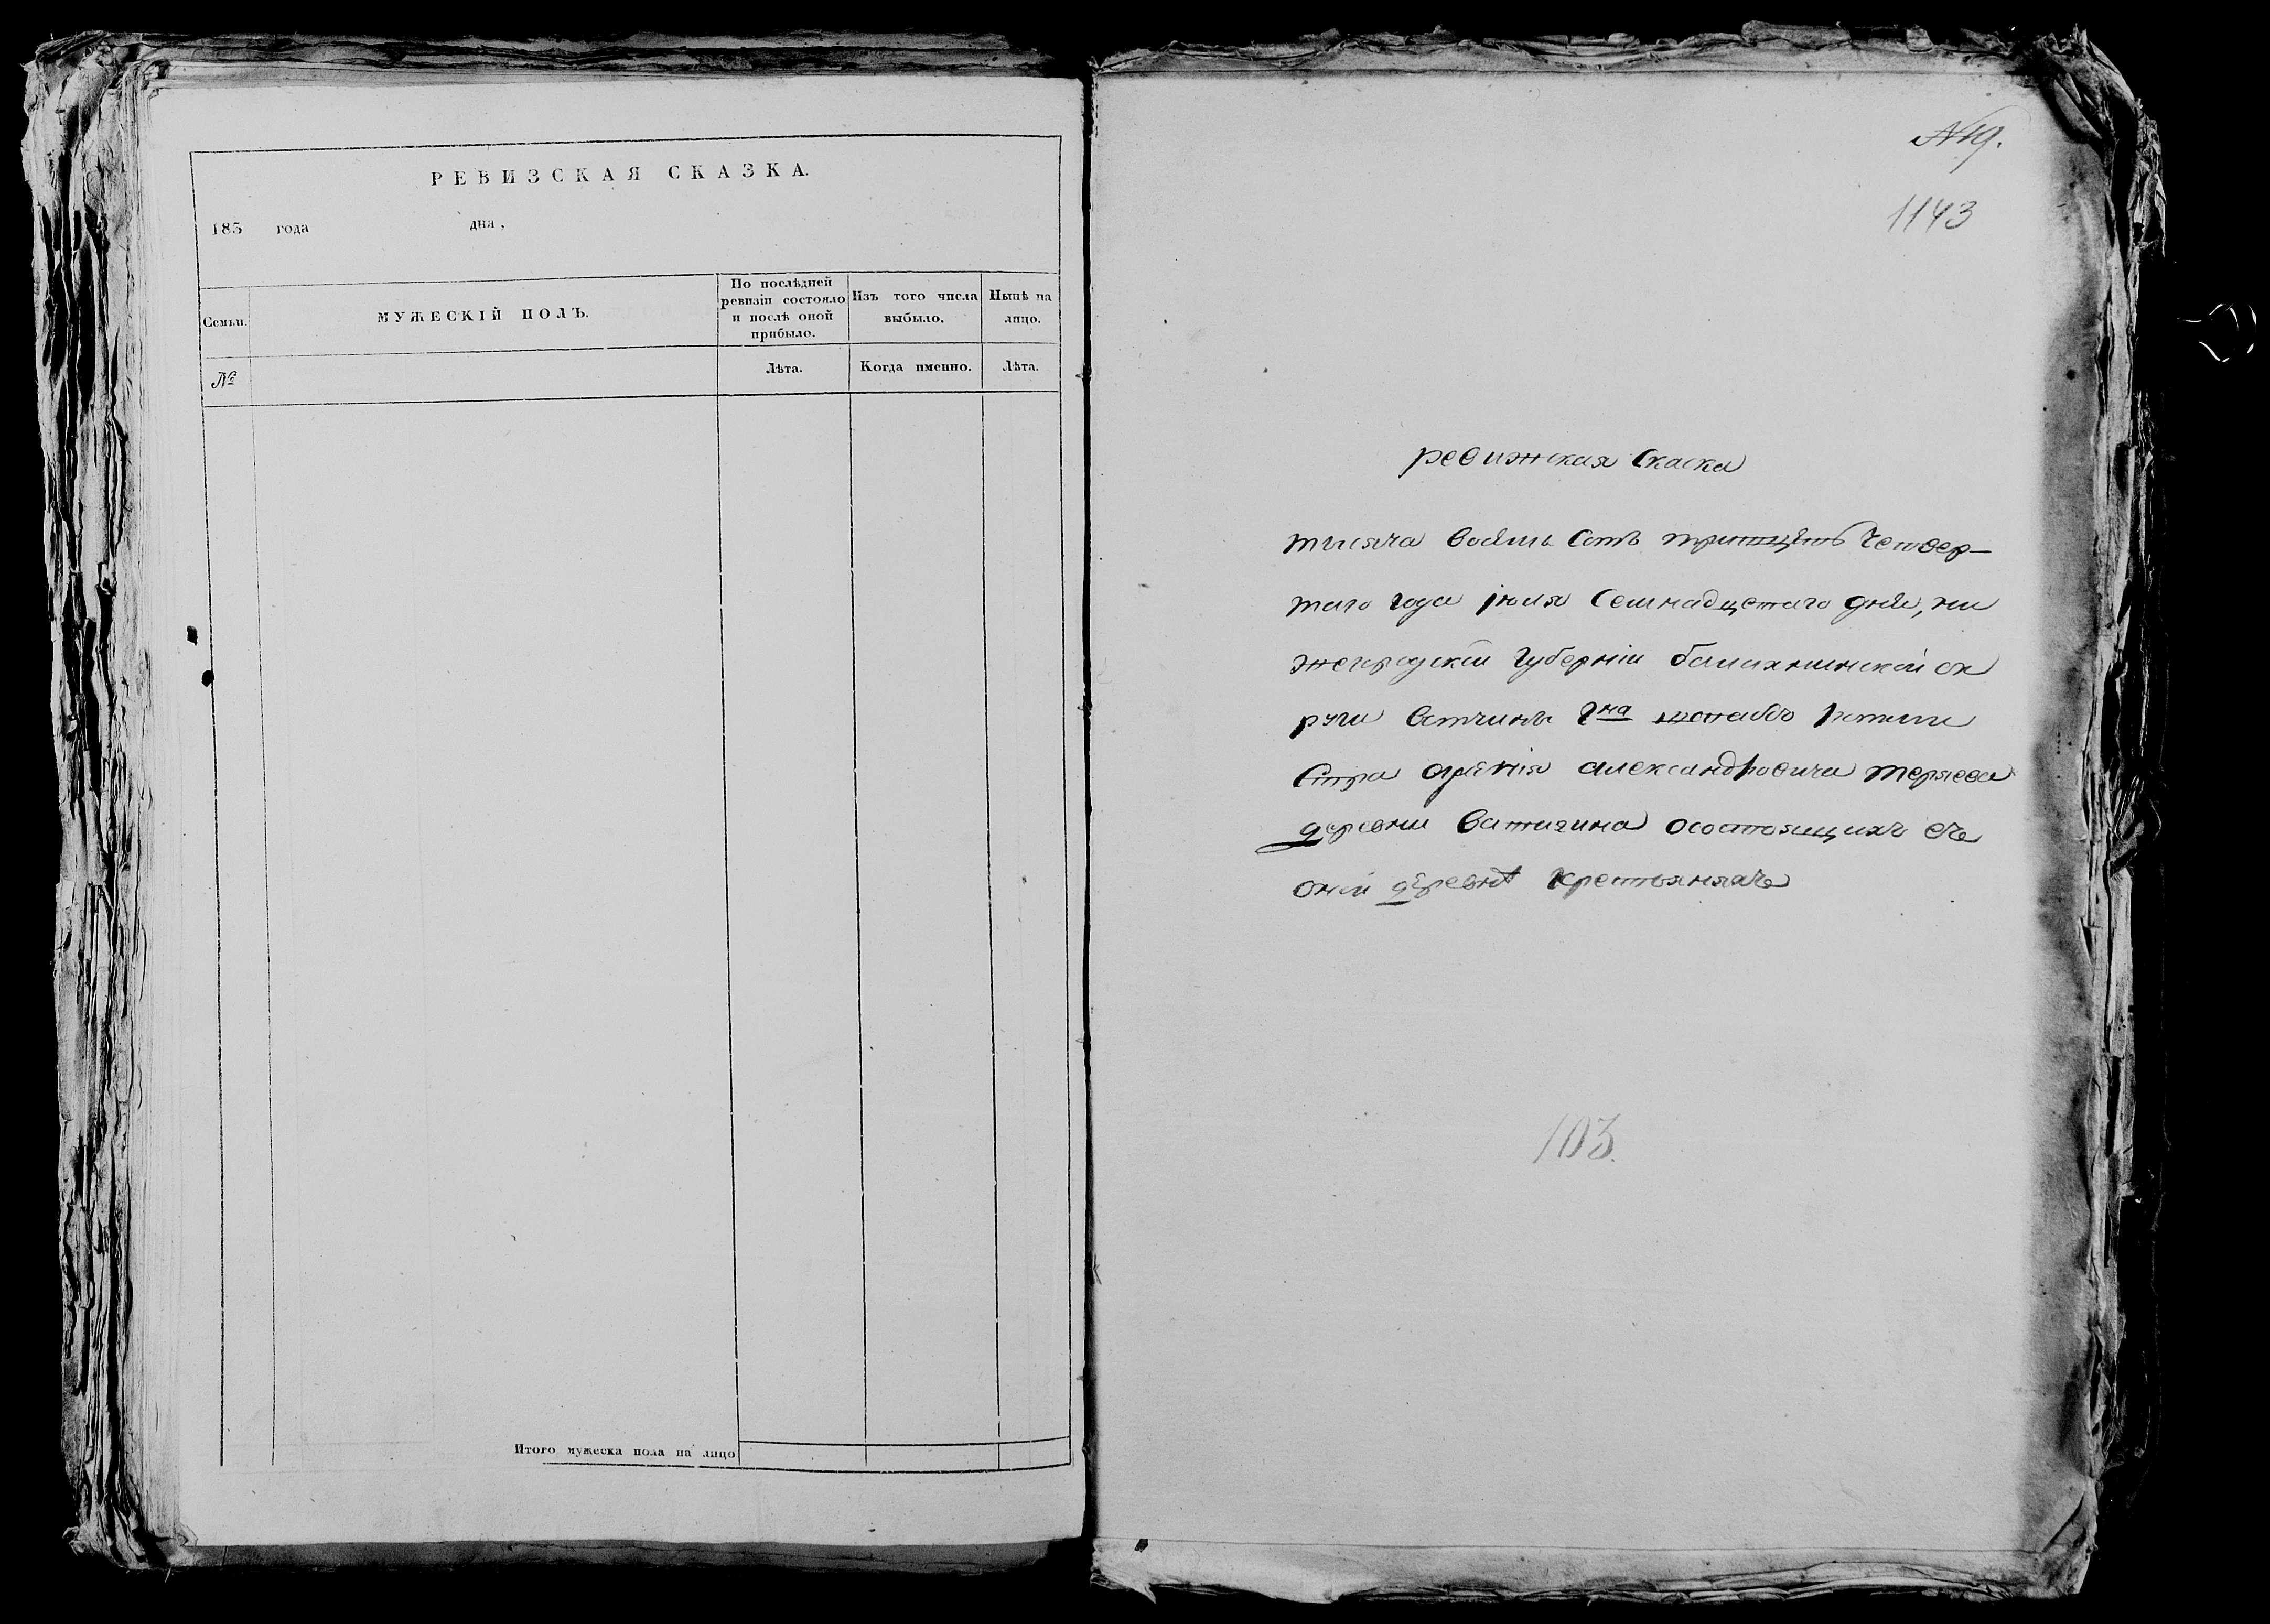 РЕВИЗСКАЯ СКАЗКА.
185 года дня,
Семьи.
МУЖЕСКІЙ ПОЛЪ.
По послѣдней
ревизіи состояло
и послѣ оной
прибыло.
Изъ того числа
выбыло.
Нынѣ на
лицо.
№
Лѣта.
Когда именно.
Лѣта.
Итого мужеска пола на лицо
1143
ревижская Скаска
тысяча восемь Сотъ тритцеть Четвер-
таго года июля Семнадцетаго дня, ни
жегородскои Губерніи балахнинской ок
руги вотчины Гна штабъ ротми
Стра александровича теряева
деревни ватагина осостоящихъ въ
оной деревнѣ крестьянахъ
103.